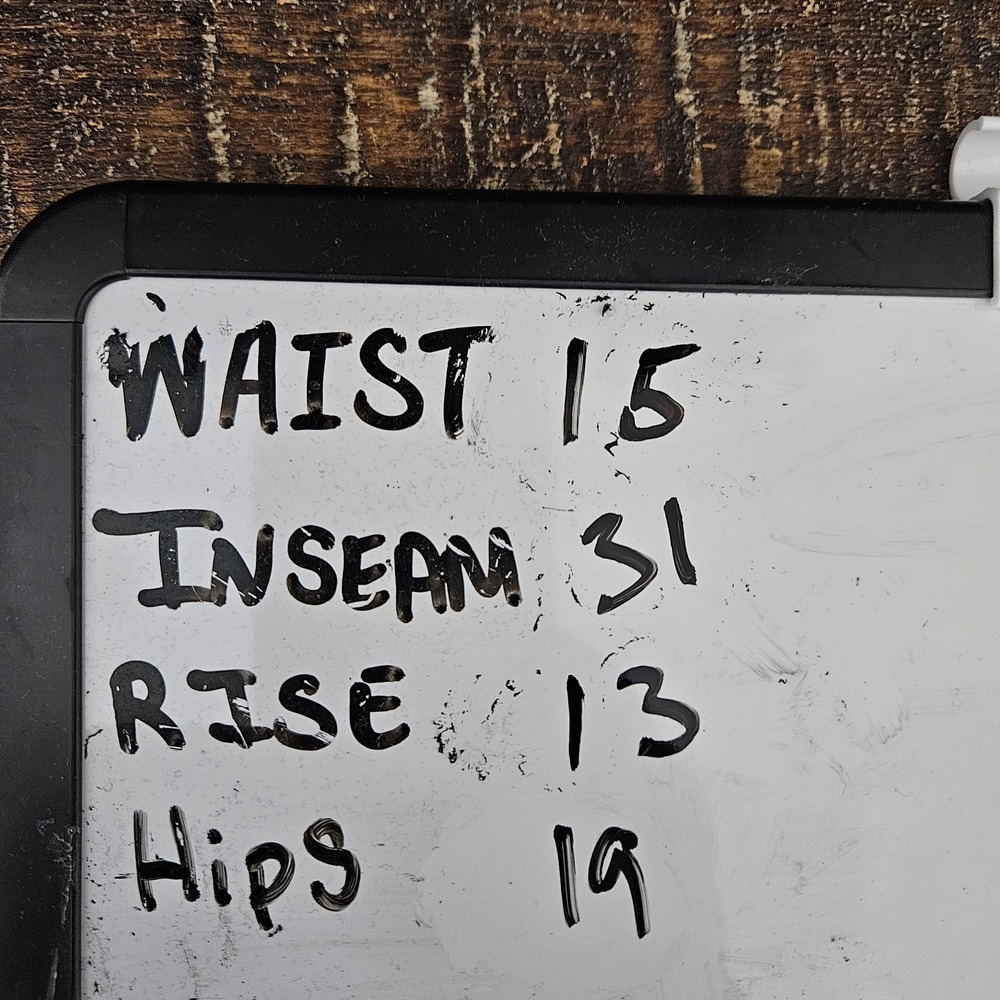 WAIST 15
INSEAM 31
RISE 13
HipS 19